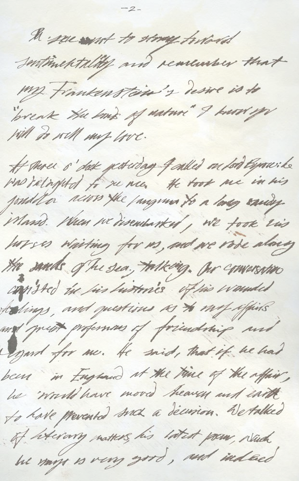 -2-
to strong toward
sentimentality and remember that
my Frankenstein's desire is to
"break the bonds of nature" I know you
will do well my love.
At three o'clock yesterday I called on Lord Byron he
was delighted to see me. He took me in his
gondola across the laguna to a long sandy
island. When we disembarked, we took his
horses waiting for us, and we rode along
the sands of the sea, talking. Our conversation
consisted the his histories of his wounded
feelings, and questions as to my affairs
and great professions of friendship and
regard for me. He said, that if he had
been in England at the time of the affair,
he would have moved heaven and earth
to have prevented such a decision. We talked
of literary matters his latest poem, which
he says is very good, and indeed